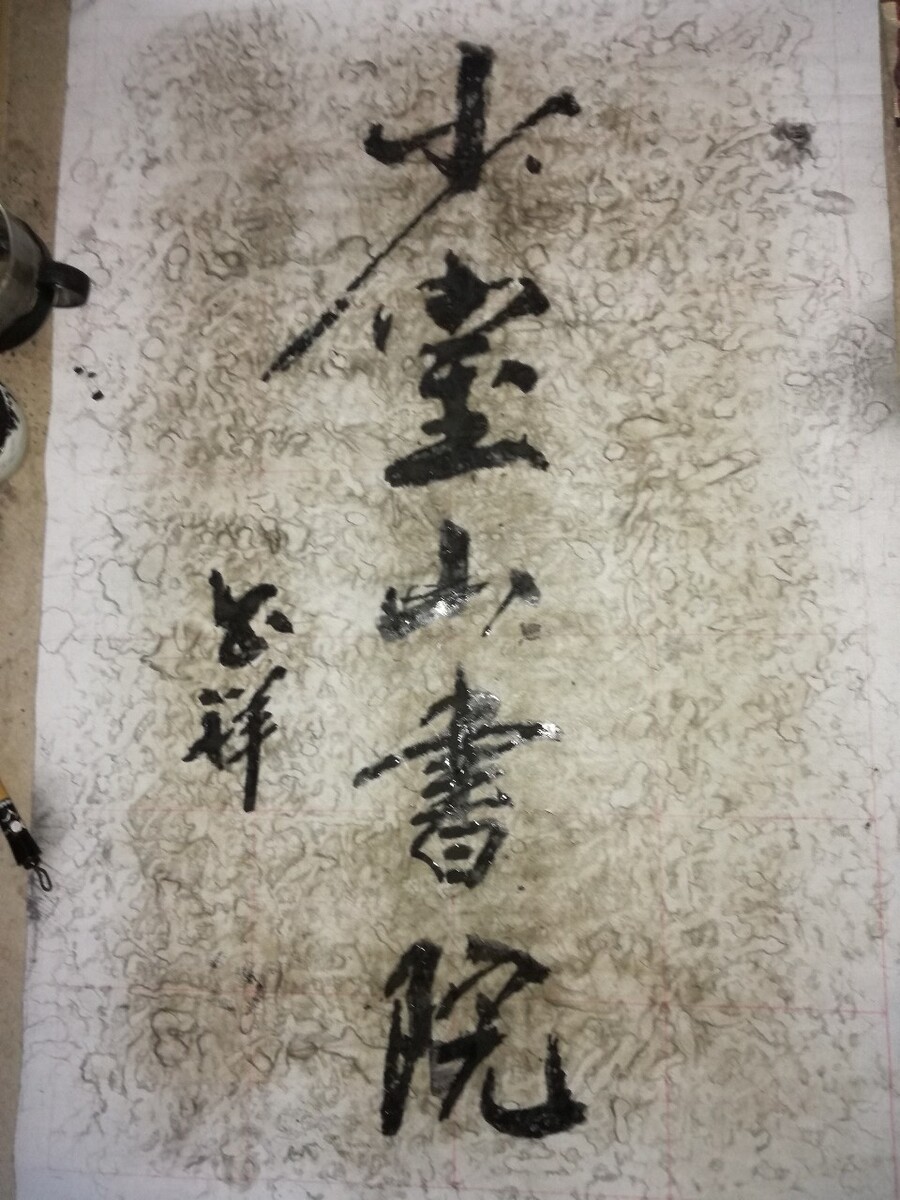 少室山書院
祥